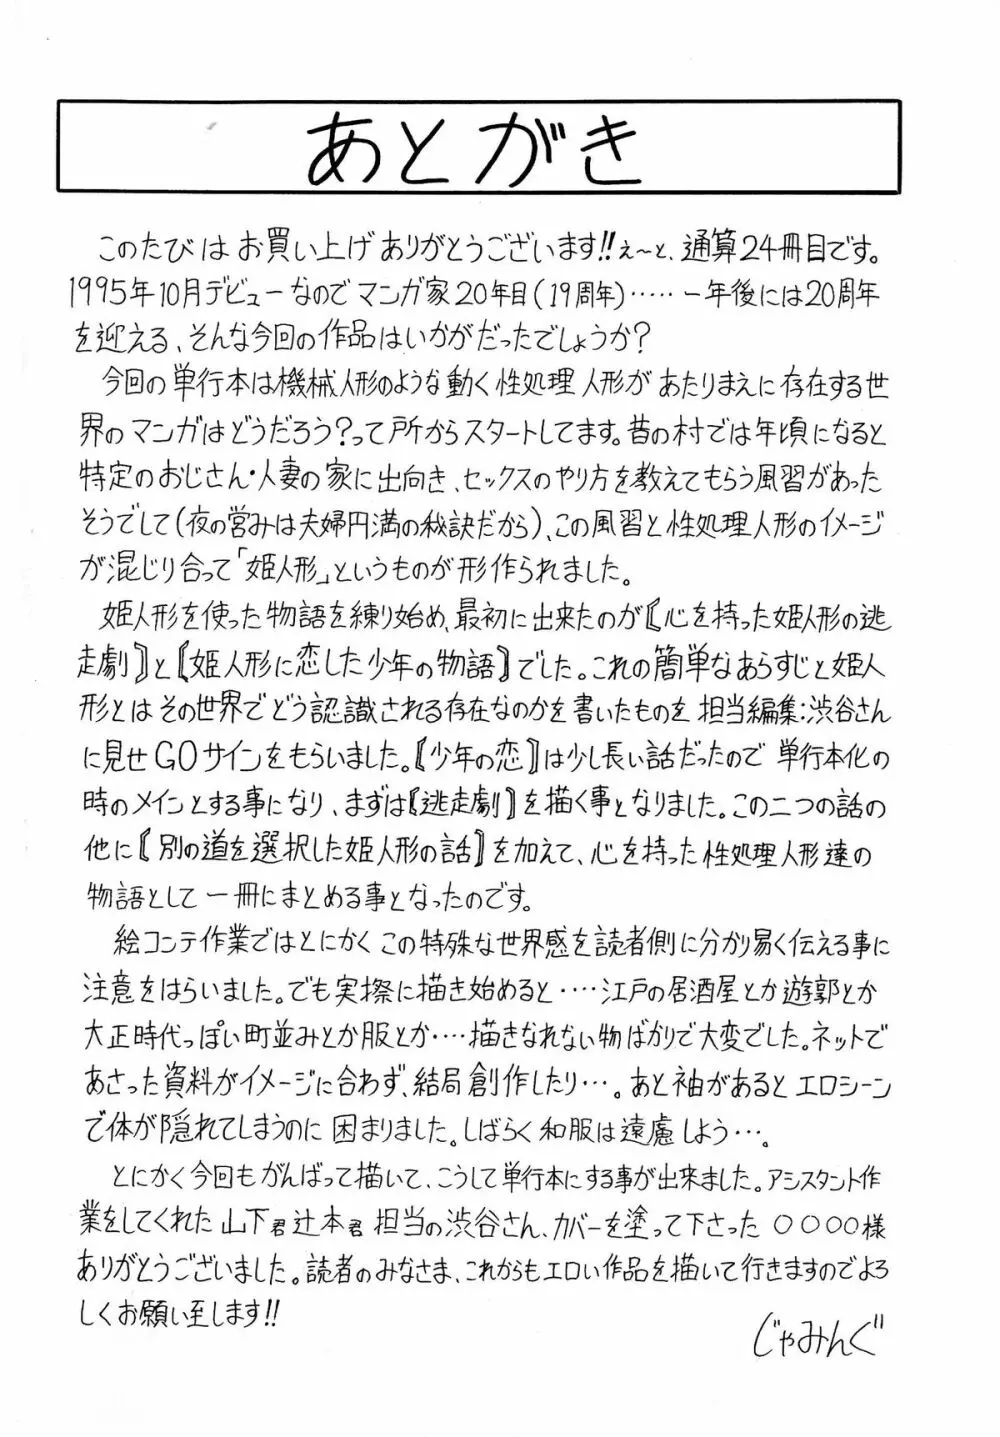 あとがき
このたびは お買い上げ ありがとうございます!!え〜と、通算24冊目です。
1995年10月デビューなので マンガ家20年目(19周年)‥‥‥一年後には20周年
を迎える、そんな今回の作品はいかがだったでしょうか?
今回の単行本は機械人形のような動く性処理人形が あたりまえに存在する世
界のマンガはどうだろう?って所からスタートしてます。昔の村では年頃になると
特定のおじさん・人妻の家に出向き、セックスのやり方を教えてもらう風習があった
そうでして(夜の営みは夫婦円満の秘訣だから)、この風習と性処理人形のイメージ
が混じり合って「姫人形」というものが形作られました。
姫人形を使った物語を練り始め、最初に出来たのが〖心を持った姫人形の逃
走劇〗と〖姫人形に恋した少年の物語〗でした。これの簡単なあらすじと姫人
形とはその世界でどう認識される存在なのかを書いたものを 担当編集:渋谷さん
に見せGOサインをもらいました。〖少年の恋〗は少し長い話だったので 単行本化の
時のメインとする事になり、まずは〖逃走劇〗を描く事となりました。この二つの話の
他に〖別の道を選択した姫人形の話〗を加えて、心を持った性処理人形達の
物語として一冊にまとめる事となったのです。
絵コンテ作業ではとにかく この特殊な世界感を読者側に分かり易く伝える事に
注意をはらいました。でも実際に描き始めると‥‥江戸の居酒屋とか遊郭とか
大正時代っぽい町並みとか服とか‥‥描きなれない物ばかりで大変でした。ネットで
あさった資料がイメージに合わず、結局創作したり‥‥。あと袖があると エロシーン
で体が隠れてしまうのに 困まりました。しばらく和服は遠慮しよう‥‥。
とにかく今回もがんばって描いて、こうして単行本にする事が出来ました。アシスタント作
業をしてくれた 山下君 辻本君 担当の渋谷さん、カバーを塗って下さった 〇〇〇〇様
ありがとうございました。読者のみなさま、これからもエロい作品を描いて行きますのでよろ
しくお願い致します!!
じゃみんぐ